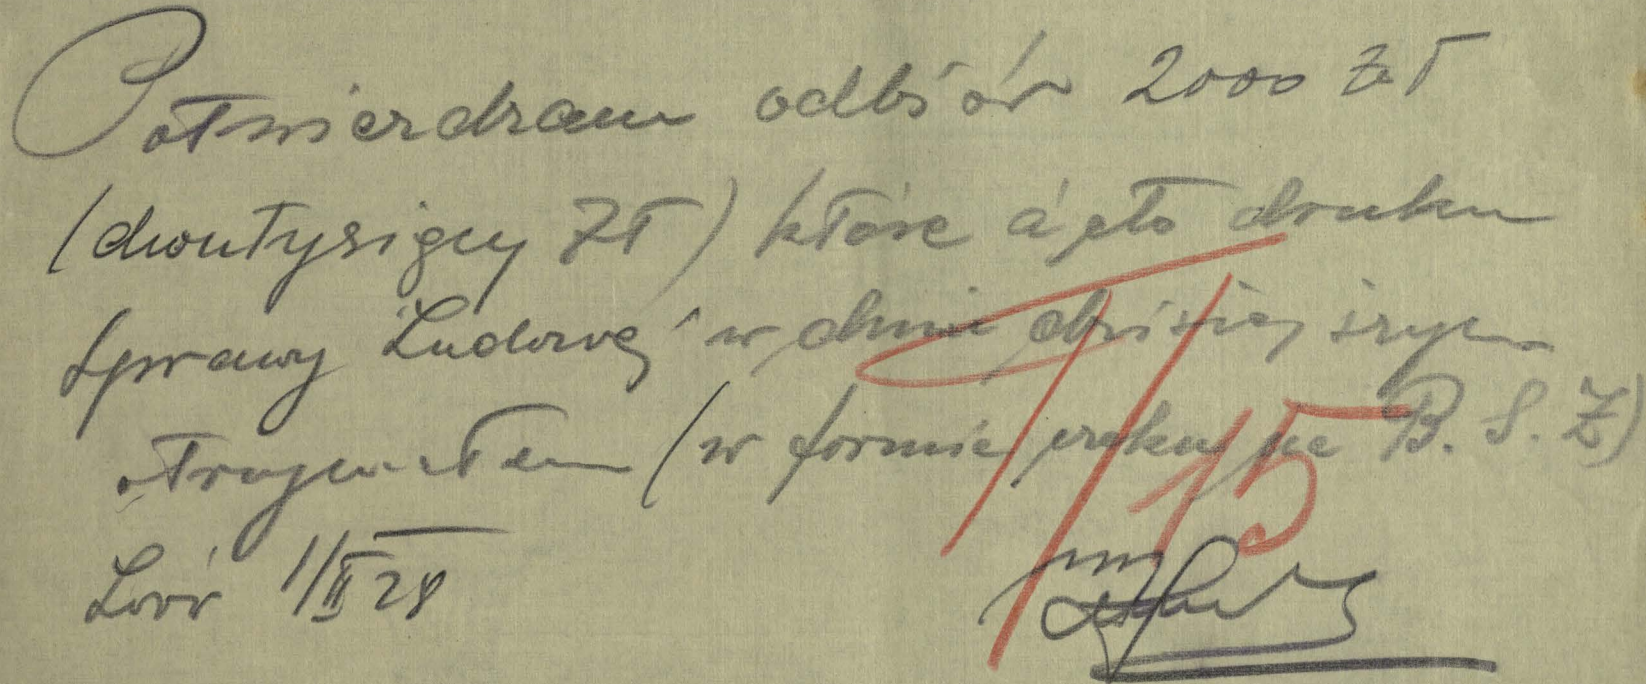 Potwierdzam odbiór 2000 Zł
(dwutysięcy Zł) które à cto druku
Sprawy Ludowej w dniu dzisiejszym
otrzymałem (w formie czeku na B. S. Z)
Lwów 1/II 28